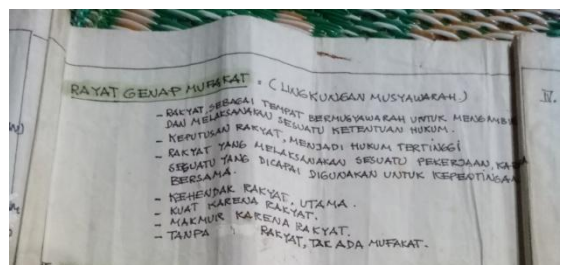 RAYAT GENAP MUFAKAT. (LINGKUNGAN MUSYAWARAH)
- RAKYAT, SEBAGAI TEMPAT BERMUSYAWARAH UNTUK MENGAMBIL
DAN MELAKSANAKAN SESUATU KETENTUAN HUKUM.
- KEPUTUSAN RAKYAT, MENJADI HUKUM TERTINGGI
- RAKYAT YANG MELAKSANAKAN SESUATU PEKERJAAN,
SESUATU YANG DICAPAI DIGUNAKAN UNTUK KEPENTINGAN
BERSAMA.
- KEHENDAK RAKYAT, UTAMA.
- KUAT KARENA RAKYAT.
- MAKMUR KARENA RAKYAT.
- TANPA RAKYAT, TAK ADA MUFAKAT.
IV.